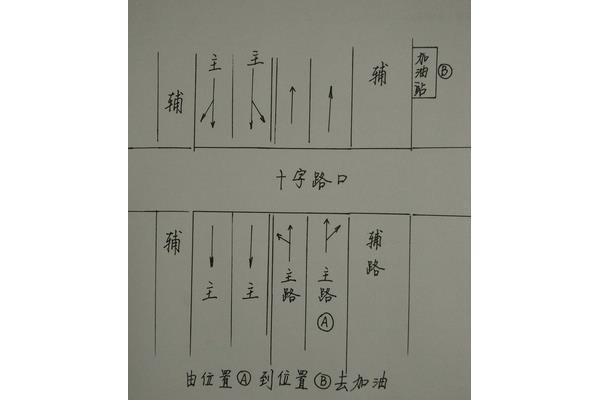 主
主
辅
辅
加油站
B
十字路口
辅
主
主
主路
主路
A
辅路
由位置A到位置B去加油